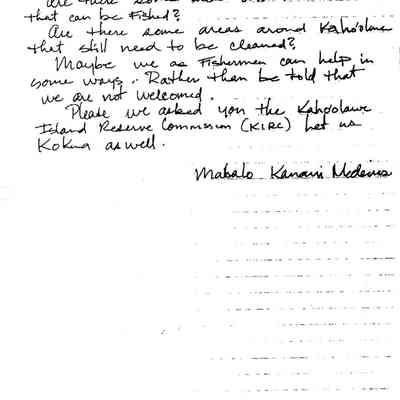 that can be Fished?
Are there some areas around Kaho'olawe
that still need to be cleaned?
Maybe we as Fishermen can help in
some ways. Rather than be told that
we are not welcomed.
Please we asked you the Kaho'olawe
Island Reserve Commission (KIRC) Let us
Kokua as well.
Mahalo Kanani Medeiros